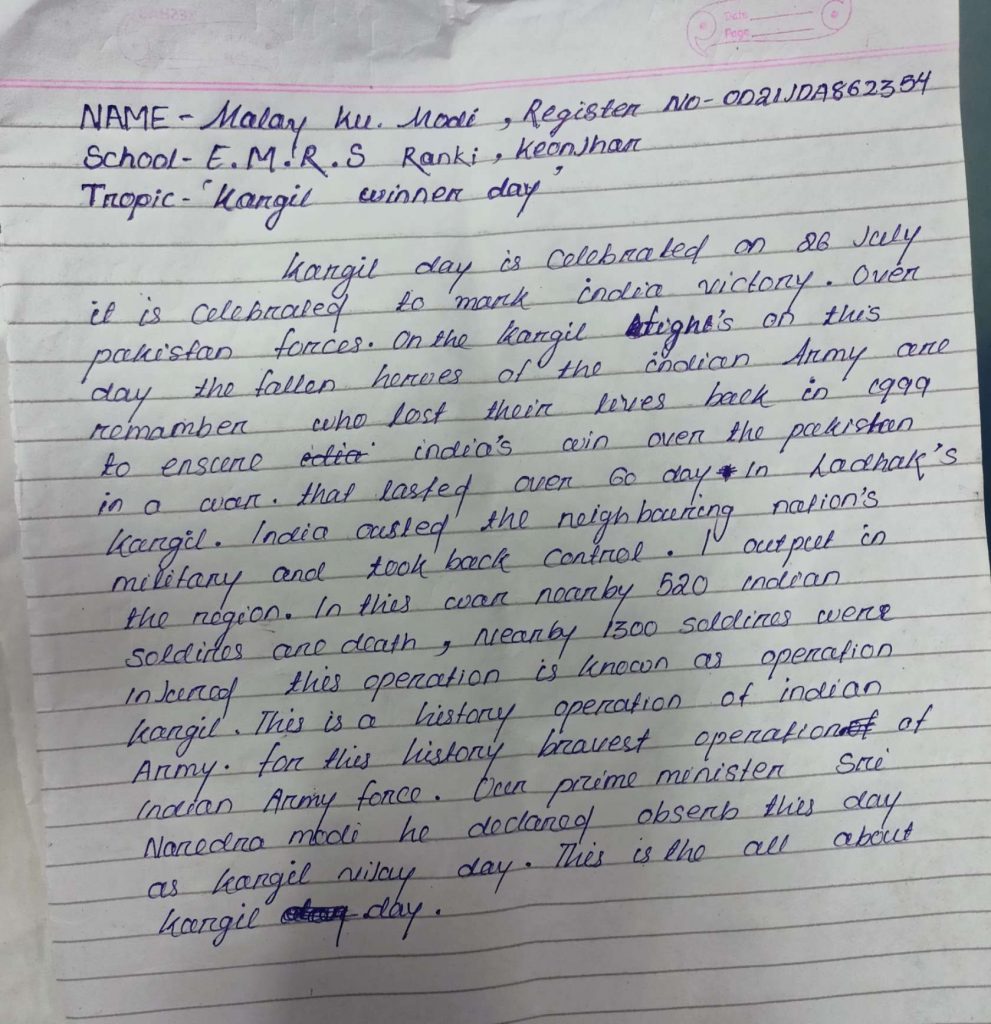 Date
Page
NAME - Malay Ku. Modi , Register No- OD21JDA862354
School- E.M.R.S Ranki , Keonjhar
Tropic- 'Kargil winner day'
Kargil day is celebrated on 26 July
it is celebrated to mark india victory. Over
pakistan forces. On the Kargil fight's on this
day the fallen heroes of the indian Army are
remamber who lost their lives back in 1999
to enscre india's win over the pakistan
in a war. that lasted over 60 day in Ladhak's
Kargil. India ousted the neighbouring nation's
military and took back control. I output in
the region. In thies war nearby 520 indian
soldires are death , Nearby 1300 soldires were
Injured this operation is known as operation
Kargil. This is a history operation of indian
Army. for this history bravest operation of
Indian Army force. Our prime minister Sri
Naredra modi he declared obserb this day
as Kargil vijay day. This is the all about
Kargil day.